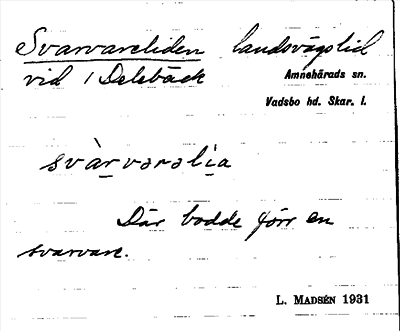 Svarvareliden landsvägslid
vid 1 Delebäck
Amnehärads sn.
Vadsbo hd. Skar. l.
svàrvaralia
Där bodde förr en
svarvare.
L. MADSÉN 1931